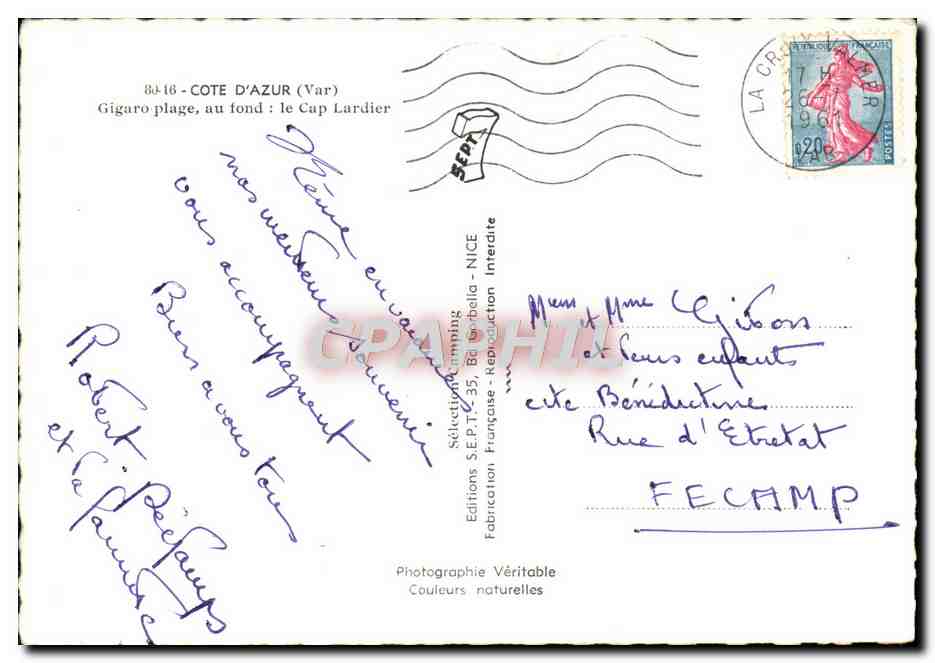 80-16 - COTE D'AZUR (Var)
Gigaro plage, au fond : le Cap Lardier
Même en vacances
nos meilleurs souvenirs
vous accompagnent
Bien a vous tous
Robert Déchamps
et la famille
Sélection Camping
Editions S.E.P.T. - 35, Bd Gorbella - NICE
Fabrication Française - Reproduction Interdite
SEPT
Photographie Véritable
Couleurs naturelles
LA CROIX VALMER
17 H
1961
VAR
REPUBLIQUE FRANÇAISE
0,20
POSTES
et Mme Gibon
et leurs enfants
cite Bénédictine
Rue d'Etretat
FECAMP
CPAPHIL